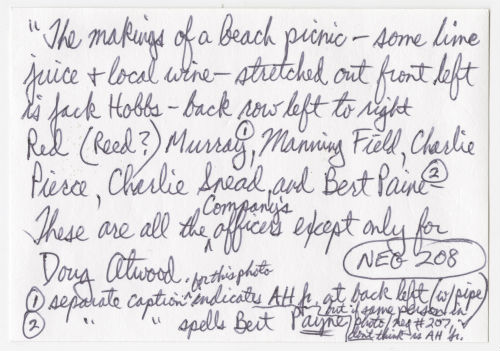 "The makings of a beach picnic – some lime
juice + local wine – stretched out front left
is Jack Hobbs – back row left to right
Red (Reed?) Murray①, Manning Field, Charlie
Pierce, Charlie Snead, and Bert Paine②
These are all the Company's officers except only for
Doug Atwood.
NEG 208
① separate caption for this photo indicates AH Jr. at back left (w/pipe)
but if same person in
photo/neg #207, I
don't think is AH Jr.
② " " spells Bert Payne